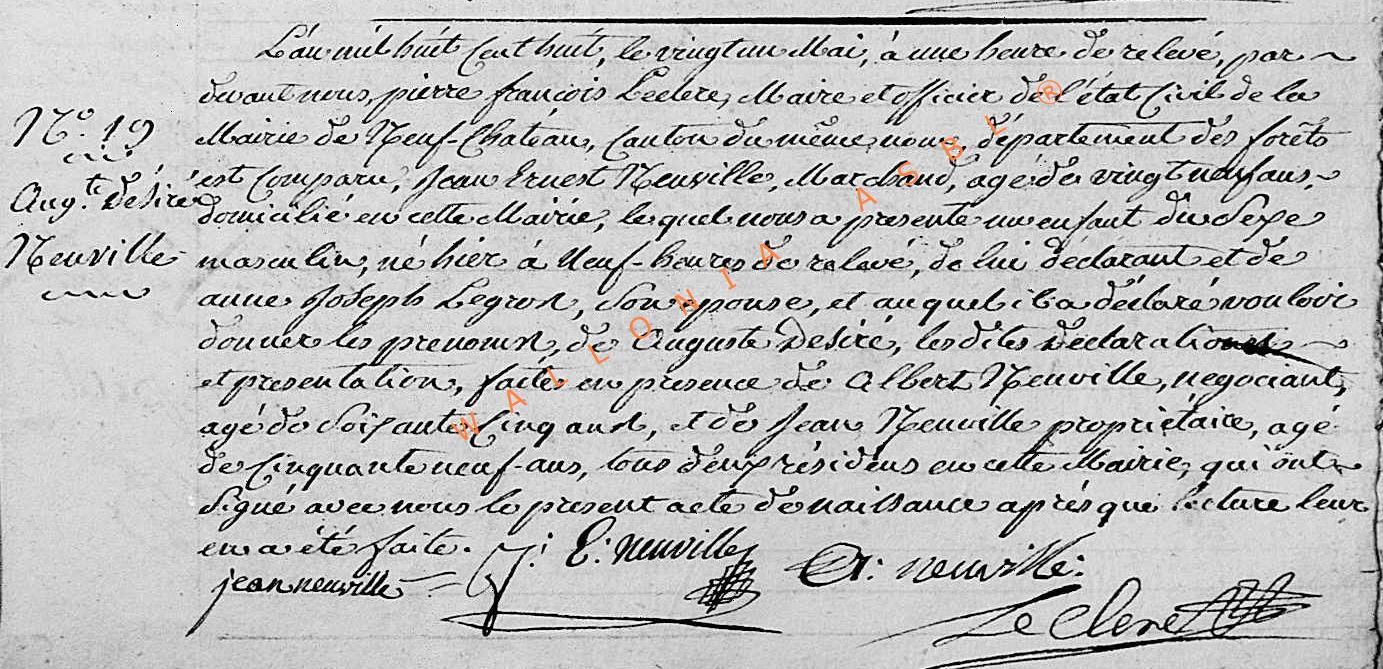 L'an mil huit Cent huit, le vingt un Mai, à une heure de relevé, par
devant nous, pierre françois Leclere, Maire et officier de l'état Civil de la
Mairie de Neuf-Chatéau, Canton du même nom, département des forêts
est Comparu, Jean Ernest Neuville, Marchand, agé de vingt neuf ans,
domicilié en cette Mairie, le quel nous a presenté un enfant du Sexe
masculin, né hier à Neuf-heures de relevé, de lui déclarant et de
anne Joseph Legros, Son epouse, et au quel il a déclaré vouloir
donner les prenoms, de Auguste Desiré, les dites Déclarations
et presentation, faite en presence de Albert Neuville, negociant,
agé de Soixante Cinq ans, et de Jean Neuville propriétaire, agé
de Cinquante neuf-ans, tous deux résidens en cette Mairie, qui ont
Signé avec nous le present acte de naissance après que lecture leur
en a été faite.
N.° 19
Aug.te Désiré
Neuville
J: E: Neuville
A: neuville:
jean neuville
Leclere
WALLONIA ASBL ®